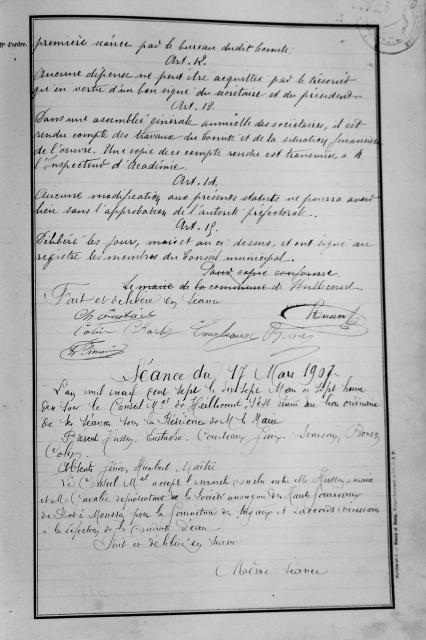 N° d'ordre.
première séance par le bureau dudit Comité.
Art. 12.
Aucune dépense ne peut être acquittée par le trésorier
qu'en vertu d'un bon signé du secrétaire et du président.
Art. 13.
Dans une assemblée générale annuelle des sociétaires, il est
rendu compte des travaux du Comité et de la situation financière
de l'œuvre. Une copie du compte rendu est transmise à M
l'Inspecteur d'Académie.
Art. 14.
Aucune modification aux présents statuts ne pourra avoir
lieu sans l'approbation de l'autorité préfectorale.
Art. 15.
Délibéré les jour, mois et an ci-dessus, et ont signé au
registre les membres du Conseil municipal.
Pour copie conforme
Le maire de la commune de
Fait et délibéré en séance
Séance du 17 Mars 1907.
L'an mil neuf cent sept le dix sept Mars à sept heures
du soir le Conseil Mal de s'est réuni au lieu ordinaire
de ses séances sous la Présidence de M. le Maire
Présents Eustache
Absents Maitre
Le Conseil Mal accepte le marché conclu entre Mr maire
et Mr représentant de la Société anonyme des Hauts fourneaux
de Pont à Mousson pour la fourniture des tuyaux et accessoires nécessaires
à la réfection de la Conduite d'eau
Fait et délibéré en séance
Même séance